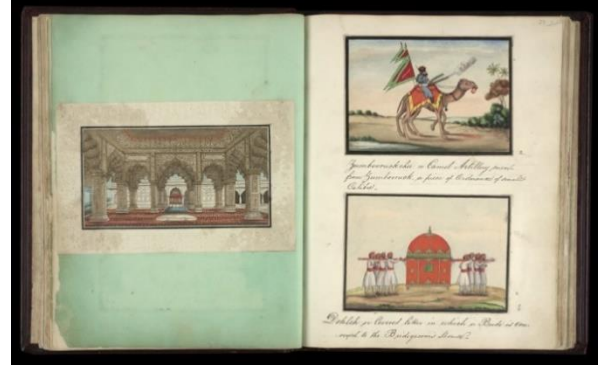 Zumboorukchee or Camel Artillery, named
from Zumboorook, a piece of Ordnance of small
Calibre.
Dohleh, or Covered litter in which a Bride is con-
veyed to the Bridegroom's House.